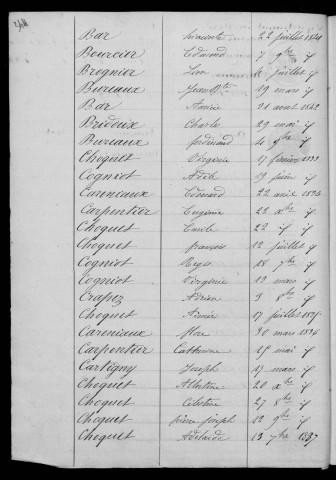 Bar hiacente 22 juillet
Bourcier Edmond 7 9bre id
Brognier Léon juillet id
Bureaux Jean Bte 19 mars id
Bar Aimée août 1842
Bridoux Charles 29 mai id
Bureaux ferdinand 4 9bre id
Choquet Virginie 17 février 1833
Cogniot Adèle 19 juin id
Carneaux Edmond 22 août 1834
Carpentier Eugénie 22 xbre id
Choquet Emile 22 id id
Choquet françois 12 juillet id
Cogniot Régis 18 7bre id
Cogniot Virginie 19 mars id
Crapez Adrien 3 8bre id
Choquet Aimée 17 juillet
Carniaux flore 30 mars
Carpentier Catherine mai id
Cartigny Joseph 19 mars id
Choquet Albertine 20 xbre id
Choquet Célestine 27 8bre id
Choquet pierre joseph 12 9bre id
Choquet Adelaïde 13 7bre 1837